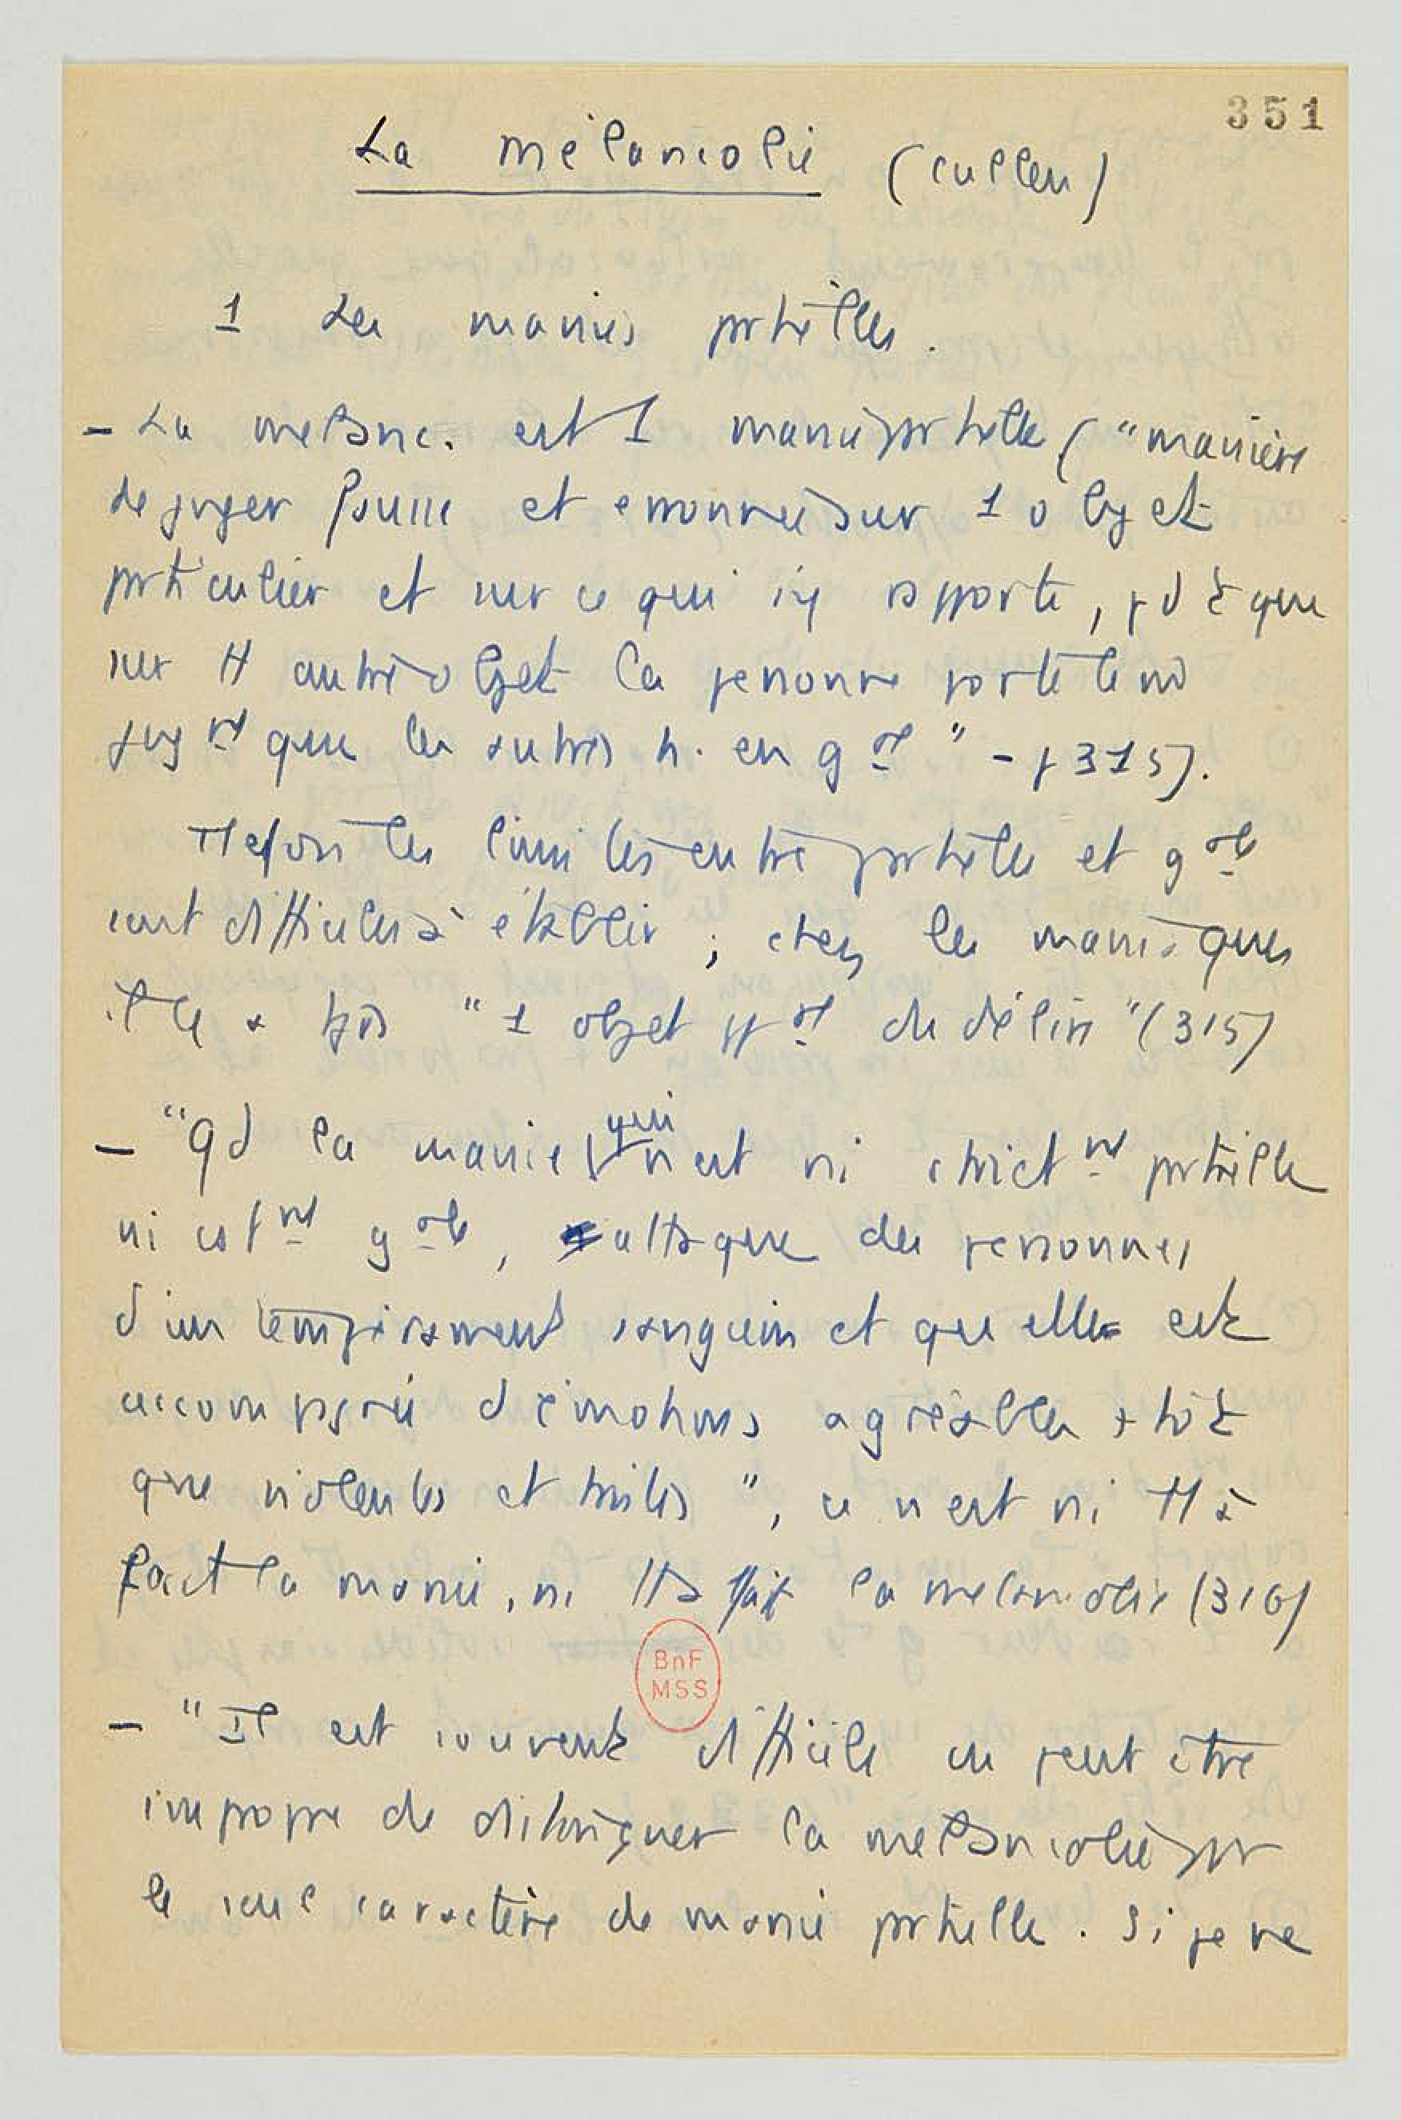 351
La mélancolie (Cullen)
1 Les manies prtielles.
- La melanc. est 1 manie prtielle ("manière
de juger fausse et erronnée sur 1 objet
prticulier et sur ce qui s'y rapporte, pd t que
sur tt autre objet la personne porte le m̂
jugnt que les autres h. en gal" - p 315).
Ttefois les limites entre prtielle et gale
sont difficiles à établir ; chez les maniaques
il y a tjrs "1 objet ppal du délire" (315)
- "Qd la manie qui n'est ni strictnt prtielle
ni coptnt gale, attaque des personnes
d'un tempérament sanguin et qu'elle est
accompagnée d'émotions agréables plutôt
que violentes et tristes", ce n'est ni tt à
fait la manie, ni tt à fait la mélancolie (316)
BnF
MSS
- "Il est souvent difficile ou peut être
impropre de distinguer la mélancolie pr
le seul caractère de manie prtielle. Si je ne